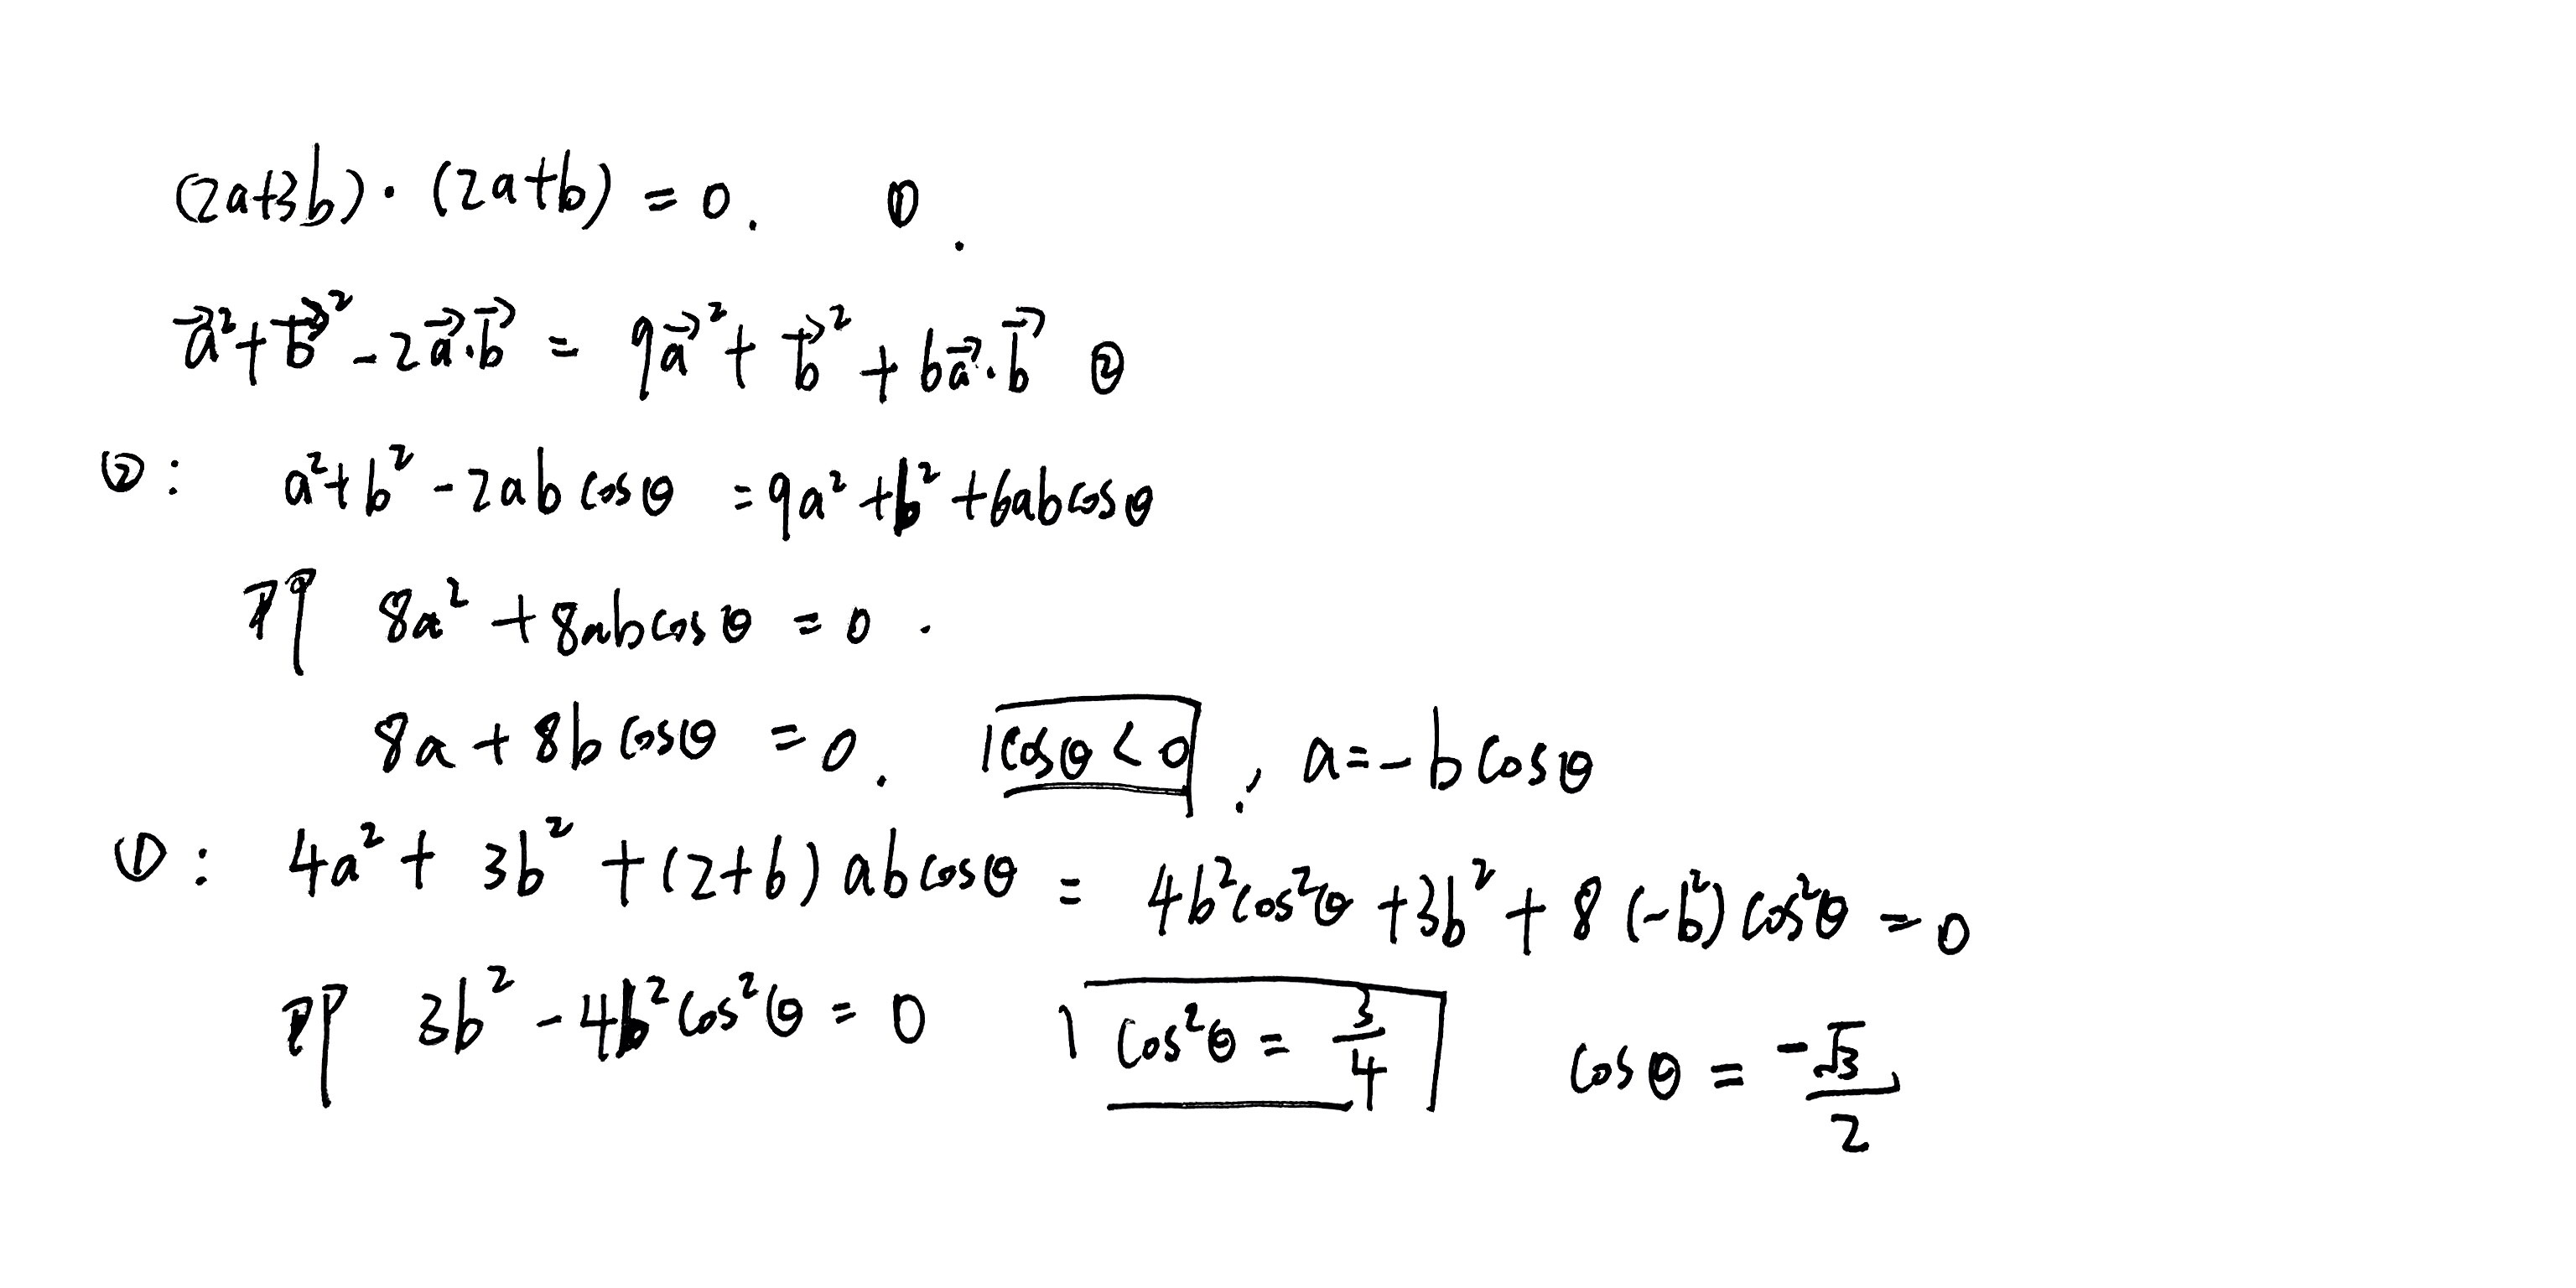 (2a+3b)·(2a+b) = 0. ①.
a⃗²+b⃗²-2a⃗·b⃗ = 9a⃗²+b⃗²+6a⃗·b⃗ ②
②: a²+b²-2abcosθ =9a²+b²+6abcosθ
即 8a²+8abcosθ = 0.
8a+8bcosθ = 0. cosθ<0, a=-bcosθ
①: 4a²+3b²+(2+6)abcosθ = 4b²cos²θ+3b²+8(-b²)cos²θ = 0
即 3b²-4b²cos²θ = 0 cos²θ = 3/4 cosθ = -√3/2